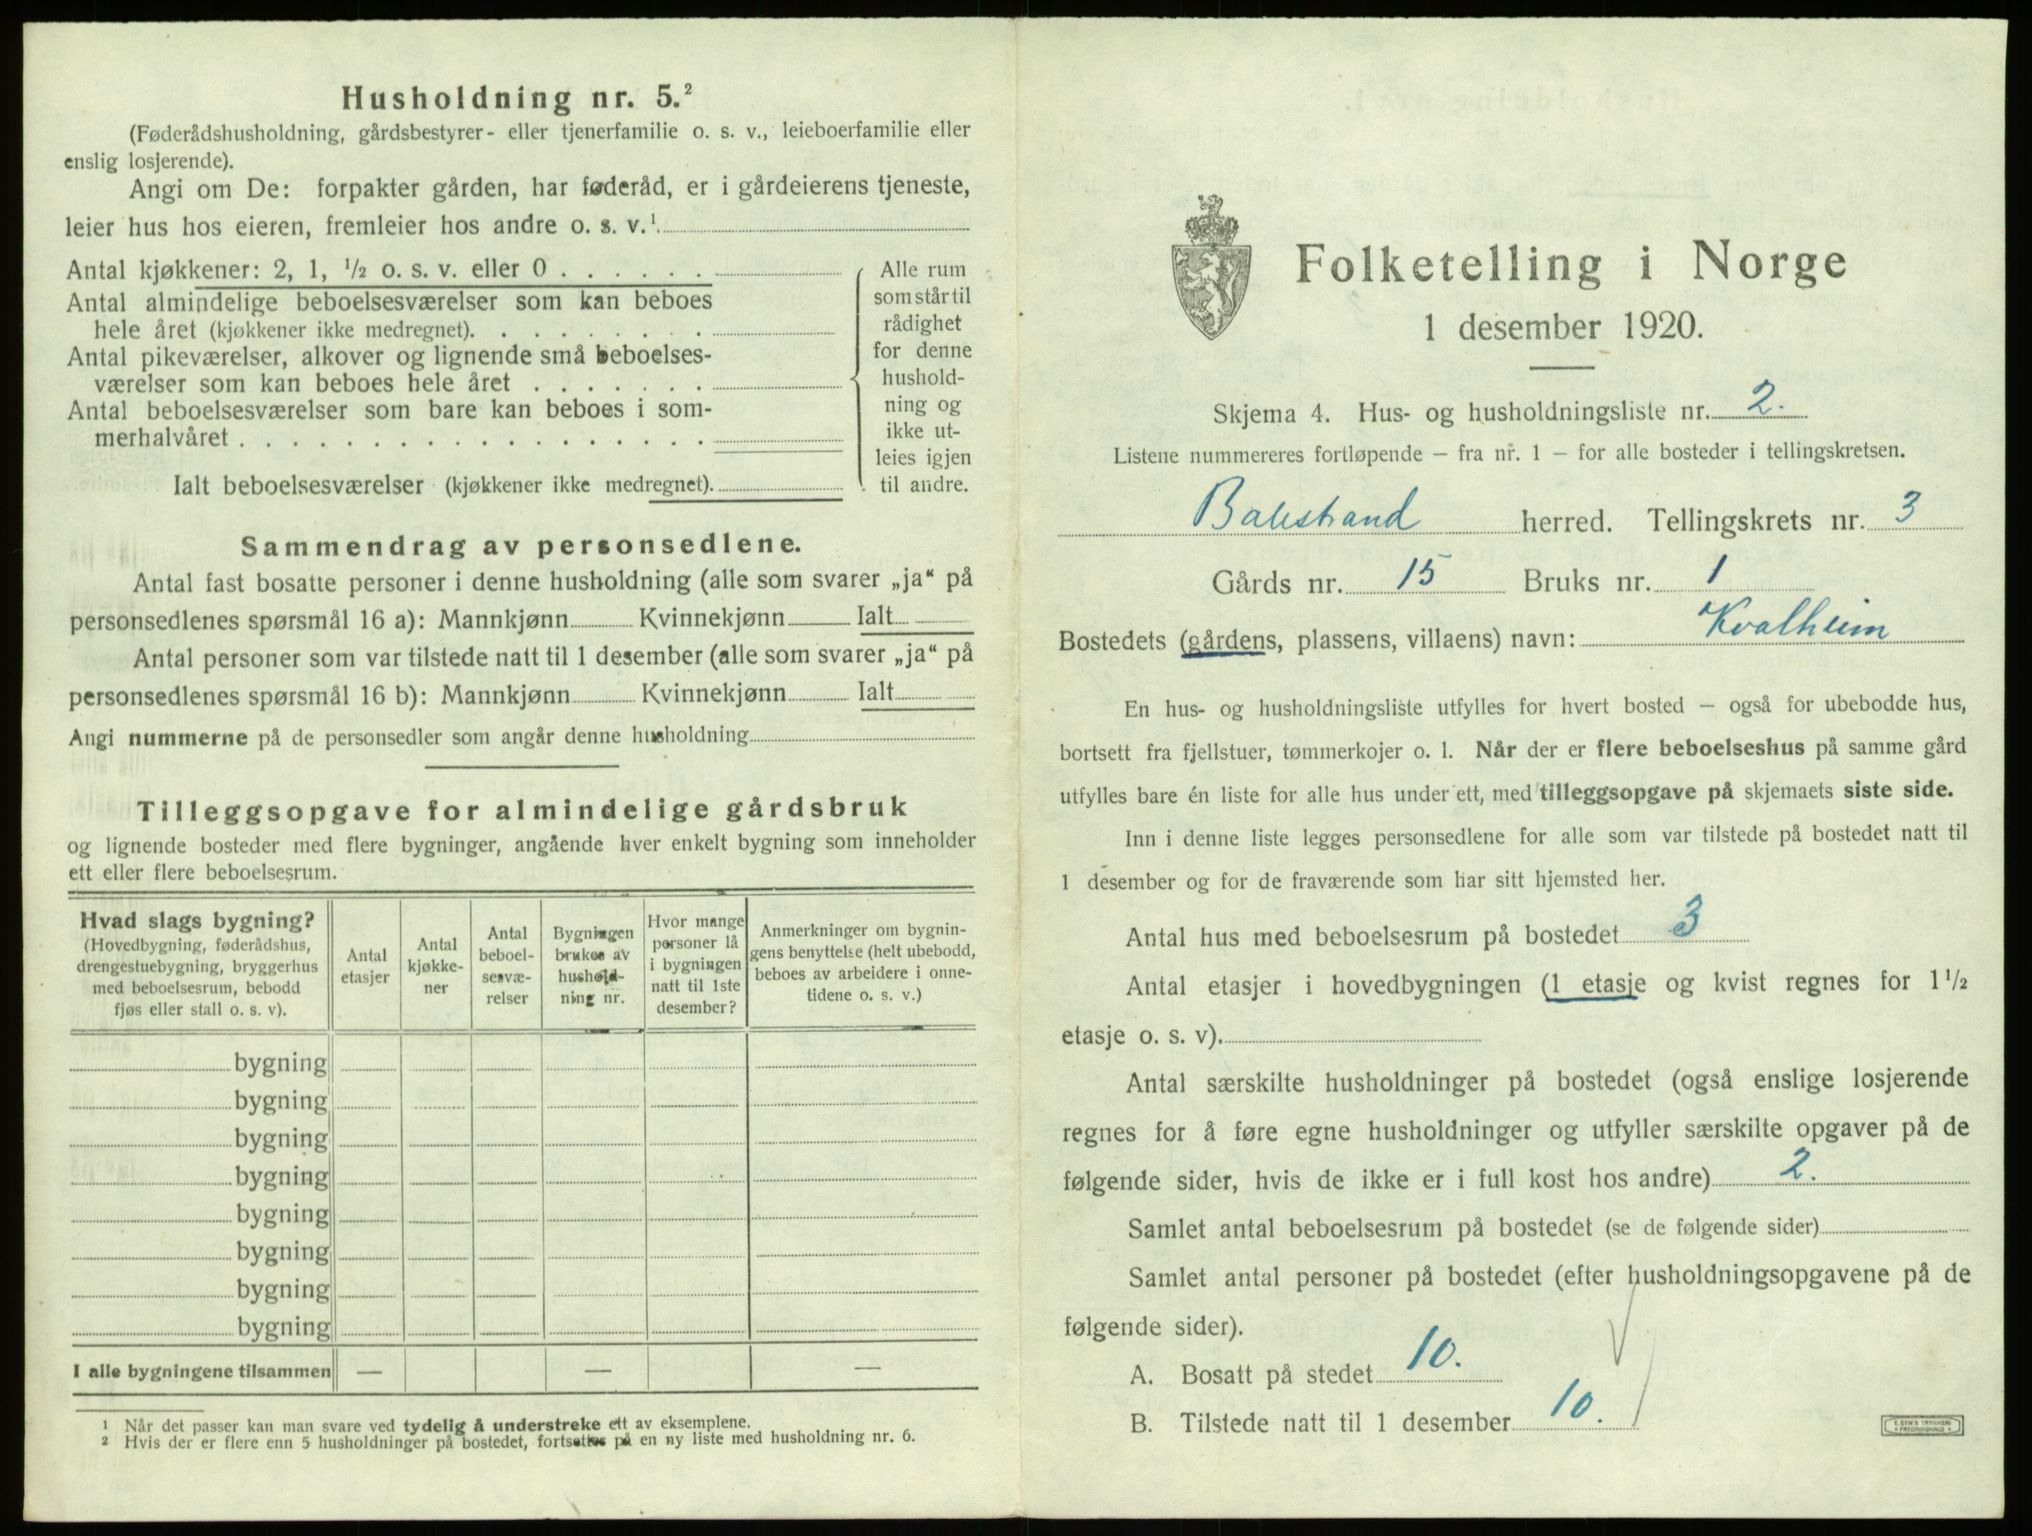 Husholdning nr. 5.²
(Føderådshusholdning, gårdsbestyrer- eller tjenerfamilie o. s. v., leieboerfamilie eller
enslig losjerende).
Angi om De: forpakter gården, har føderåd, er i gårdeierens tjeneste,
leier hus hos eieren, fremleier hos andre o. s. v.¹
Antal kjøkkener: 2, 1, ½ o. s. v. eller 0 . . . . . .
Antal almindelige beboelsesværelser som kan beboes
hele året (kjøkkener ikke medregnet). . . . . . . . .
Antal pikeværelser, alkover og lignende små beboelses-
værelser som kan beboes hele året . . . . . . .
Antal beboelsesværelser som bare kan beboes i som-
merhalvåret . . . . . . . . . . . . . . . . . .
Ialt beboelsesværelser (kjøkkener ikke medregnet).
Alle rum
som står til
rådighet
for denne
hushold-
ning og
ikke ut-
leies igjen
til andre.
Sammendrag av personsedlene.
Antal fast bosatte personer i denne husholdning (alle som svarer „ja“ på
personsedlenes spørsmål 16 a): Mannkjønn Kvinnekjønn Ialt
Antal personer som var tilstede natt til 1 desember (alle som svarer „ja“ på
personsedlenes spørsmål 16 b): Mannkjønn Kvinnekjønn Ialt
Angi nummerne på de personsedler som angår denne husholdning
Tilleggsopgave for almindelige gårdsbruk
og lignende bosteder med flere bygninger, angående hver enkelt bygning som inneholder
ett eller flere beboelsesrum.
Hvad slags bygning?
(Hovedbygning, føderådshus,
drengestuebygning, bryggerhus
med beboelsesrum, bebodd
fjøs eller stall o. s. v).
Antal
etasjer
Antal
kjøkke-
ner
Antal
beboel-
sesvæ-
relser
Bygningen
brukes av
hushold-
ning nr.
Hvor mange
personer lå
i bygningen
natt til 1ste
desember?
Anmerkninger om bygnin-
gens benyttelse (helt ubebodd,
beboes av arbeidere i onne-
tidene o. s. v.)
bygning
bygning
bygning
bygning
bygning
bygning
bygning
bygning
I alle bygningene tilsammen — — —
¹ Når det passer kan man svare ved tydelig å understreke ett av eksemplene.
² Hvis der er flere enn 5 husholdninger på bostedet, fortsettes på en ny liste med husholdning nr. 6.
Folketelling i Norge
1 desember 1920.
Skjema 4. Hus- og husholdningsliste nr. 2.
Listene nummereres fortløpende – fra nr. 1 – for alle bosteder i tellingskretsen.
Balestrand herred. Tellingskrets nr. 3
Gårds nr. 15 Bruks nr. 1
Bostedets (gårdens, plassens, villaens) navn: Kvalheim
En hus- og husholdningsliste utfylles for hvert bosted – også for ubebodde hus,
bortsett fra fjellstuer, tømmerkojer o. l. Når der er flere beboelseshus på samme gård
utfylles bare én liste for alle hus under ett, med tilleggsopgave på skjemaets siste side.
Inn i denne liste legges personsedlene for alle som var tilstede på bostedet natt til
1 desember og for de fraværende som har sitt hjemsted her.
Antal hus med beboelsesrum på bostedet 3
Antal etasjer i hovedbygningen (1 etasje og kvist regnes for 1½
etasje o. s. v).
Antal særskilte husholdninger på bostedet (også enslige losjerende
regnes for å føre egne husholdninger og utfyller særskilte opgaver på de
følgende sider, hvis de ikke er i full kost hos andre) 2.
Samlet antal beboelsesrum på bostedet (se de følgende sider)
Samlet antal personer på bostedet (efter husholdningsopgavene på de
følgende sider).
A. Bosatt på stedet 10.
B. Tilstede natt til 1 desember 10.
E. SEM'S TRYKKERI
FREDRIKSHALD